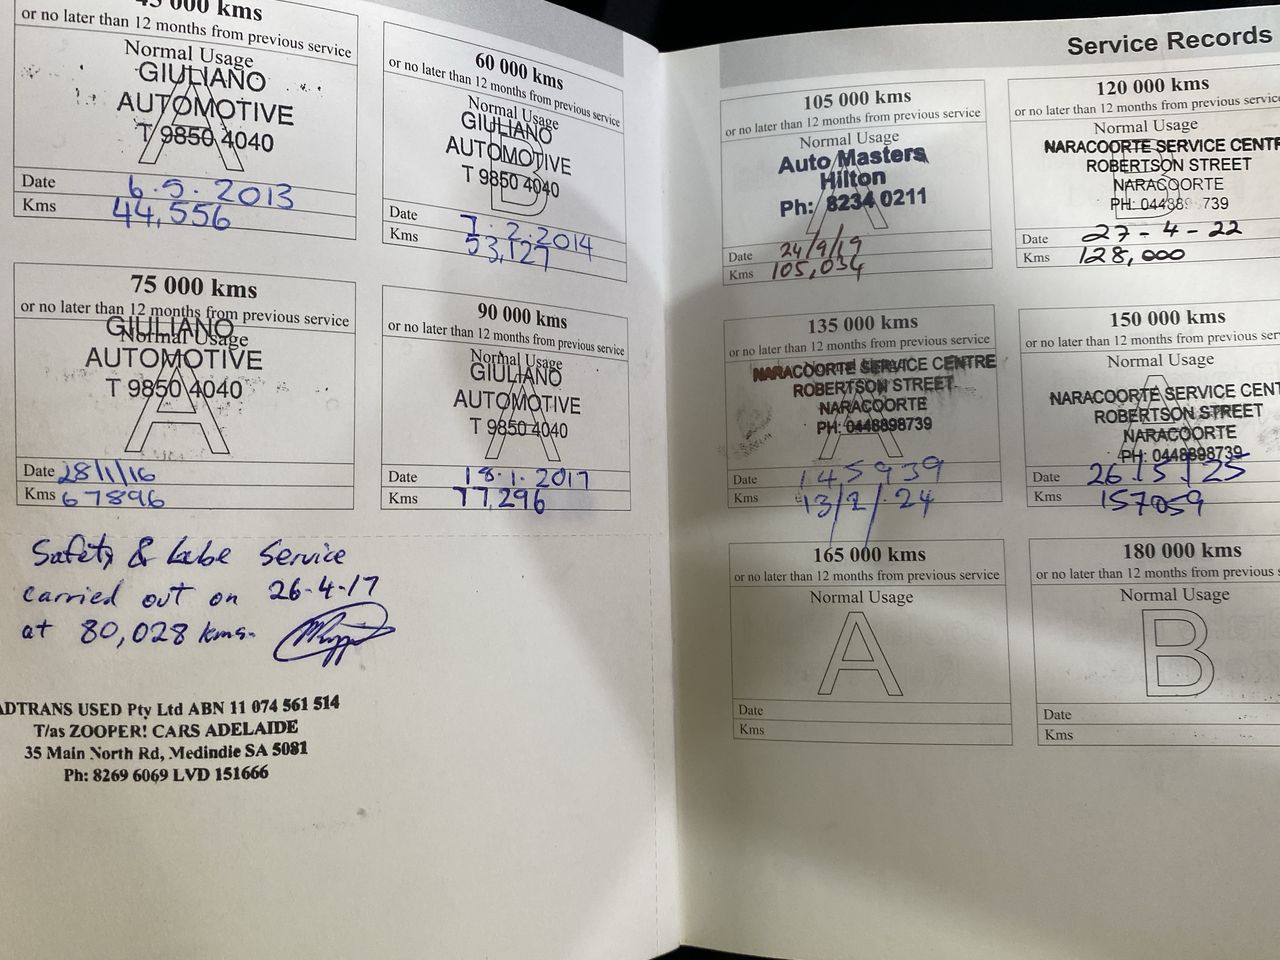 45 000 kms
or no later than 12 months from previous service
Normal Usage
GIULIANO
AUTOMOTIVE
T 9850 4040
A
Date 6.5.2013
Kms 44,556
60 000 kms
or no later than 12 months from previous service
Normal Usage
GIULIANO
AUTOMOTIVE
T 9850 4040
B
Date 7.2.2014
Kms 53,127
75 000 kms
or no later than 12 months from previous service
Normal Usage
GIULIANO
AUTOMOTIVE
T 9850 4040
A
Date 28/1/16
Kms 67896
90 000 kms
or no later than 12 months from previous service
Normal Usage
GIULIANO
AUTOMOTIVE
T 9850 4040
Date 18.1.2017
Kms 77,296
Safety & Lube Service
carried out on 26-4-17
at 80,028 kms.
ADTRANS USED Pty Ltd ABN 11 074 561 514
T/as ZOOPER! CARS ADELAIDE
35 Main North Rd, Medindie SA 5081
Ph: 8269 6069 LVD 151666
Service Records
105 000 kms
or no later than 12 months from previous service
Normal Usage
Auto Masters
Hilton
Ph: 8234 0211
A
Date 24/9/19
Kms 105,034
120 000 kms
or no later than 12 months from previous service
Normal Usage
NARACOORTE SERVICE CENTR
ROBERTSON STREET
NARACOORTE
PH: 0448898739
B
Date 27-4-22
Kms 128,000
135 000 kms
or no later than 12 months from previous service
NARACOORTE SERVICE CENTRE
ROBERTSON STREET
NARACOORTE
PH: 0448898739
A
Date 145939
Kms 13/2/24
150 000 kms
or no later than 12 months from previous serv
Normal Usage
NARACOORTE SERVICE CENT
ROBERTSON STREET
NARACOORTE
PH: 0448898739
A
Date 26/5/25
Kms 157059
165 000 kms
or no later than 12 months from previous service
Normal Usage
A
Date
Kms
180 000 kms
or no later than 12 months from previous s
Normal Usage
B
Date
Kms